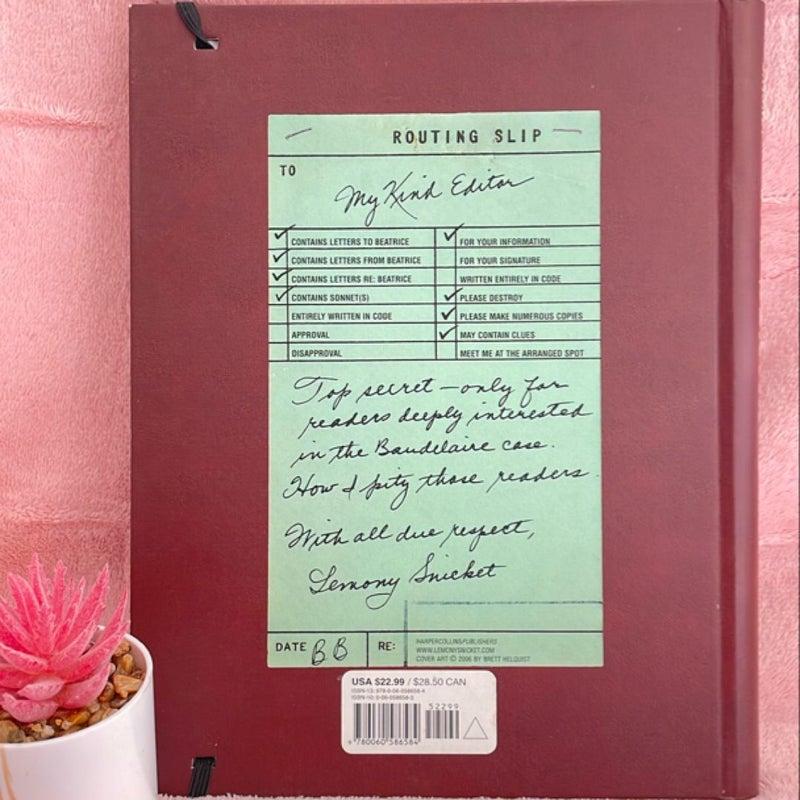 ROUTING SLIP
TO
My Kind Editor
CONTAINS LETTERS TO BEATRICE
FOR YOUR INFORMATION
CONTAINS LETTERS FROM BEATRICE
FOR YOUR SIGNATURE
CONTAINS LETTERS RE: BEATRICE
WRITTEN ENTIRELY IN CODE
CONTAINS SONNET(S)
PLEASE DESTROY
ENTIRELY WRITTEN IN CODE
PLEASE MAKE NUMEROUS COPIES
APPROVAL
MAY CONTAIN CLUES
DISAPPROVAL
MEET ME AT THE ARRANGED SPOT
Top secret – only for
readers deeply interested
in the Baudelaire case.
How I pity those readers.
With all due respect,
Lemony Snicket
DATE BB RE:
HARPERCOLLINSPUBLISHERS
WWW.LEMONYSNICKET.COM
COVER ART © 2006 BY BRETT HELQUIST
USA $22.99 / $28.50 CAN
ISBN-13: 978-0-06-058658-4
ISBN-10: 0-06-058658-3
52299
9 780060 586584